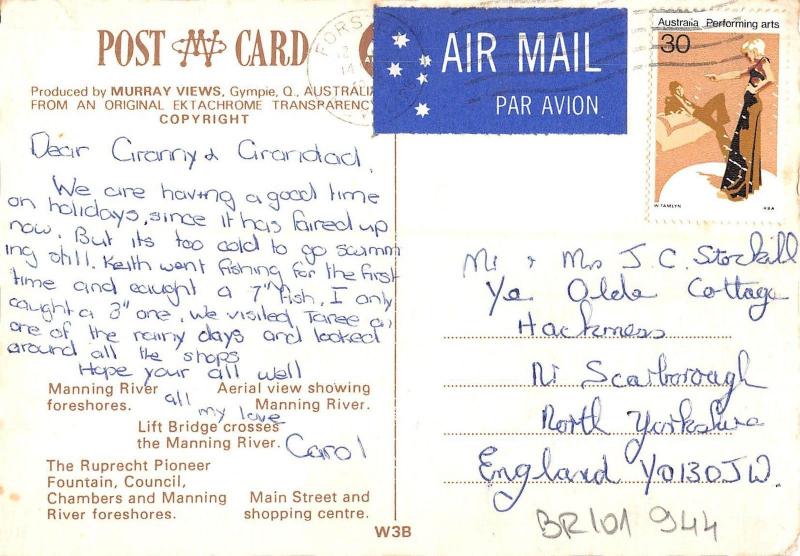 POST CARD
Produced by MURRAY VIEWS, Gympie, Q., AUSTRALIA
FROM AN ORIGINAL EKTACHROME TRANSPARENCY
COPYRIGHT
FORS
14
AIR MAIL
PAR AVION
Australia Performing arts
30
W.TAMLYN
RBA
Dear Granny & Grandad,
We are having a good time
on holidays, since it has faired up
now. But its too cold to go swimm
ing still. Keith went fishing for the first
time and caught a 7" fish, I only
caught a 3" one, we visited Taree on
one of the rainy days and looked
around all the shops
Hope your all well
all my love
Carol
Manning River
foreshores.
Aerial view showing
Manning River.
Lift Bridge crosses
the Manning River.
The Ruprecht Pioneer
Fountain, Council,
Chambers and Manning
River foreshores.
Main Street and
shopping centre.
W3B
Mr & Mrs J. C. Stockill
Ye Olde Cottage
Hackness
Nr Scarborough
North Yorkshire
England YO130JW.
BR101 944